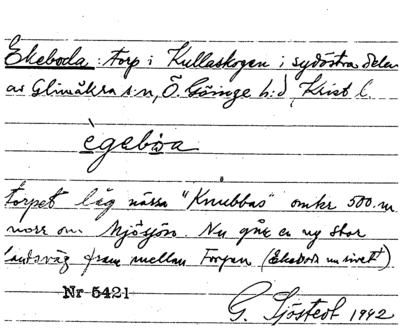 Ekeboda: torp i Kullaskogen i sydöstra delen
av Glimåkra s:n, Ö. Göinge h:d, Krist l.
ègeboa
torpet låg nära "Knubbas" omkr 500 m
norr om Mjösjön. Nu går en ny stor
landsväg fram mellan Torpen (Ekeboda
Nr 5421
G. Sjöstedt 1942